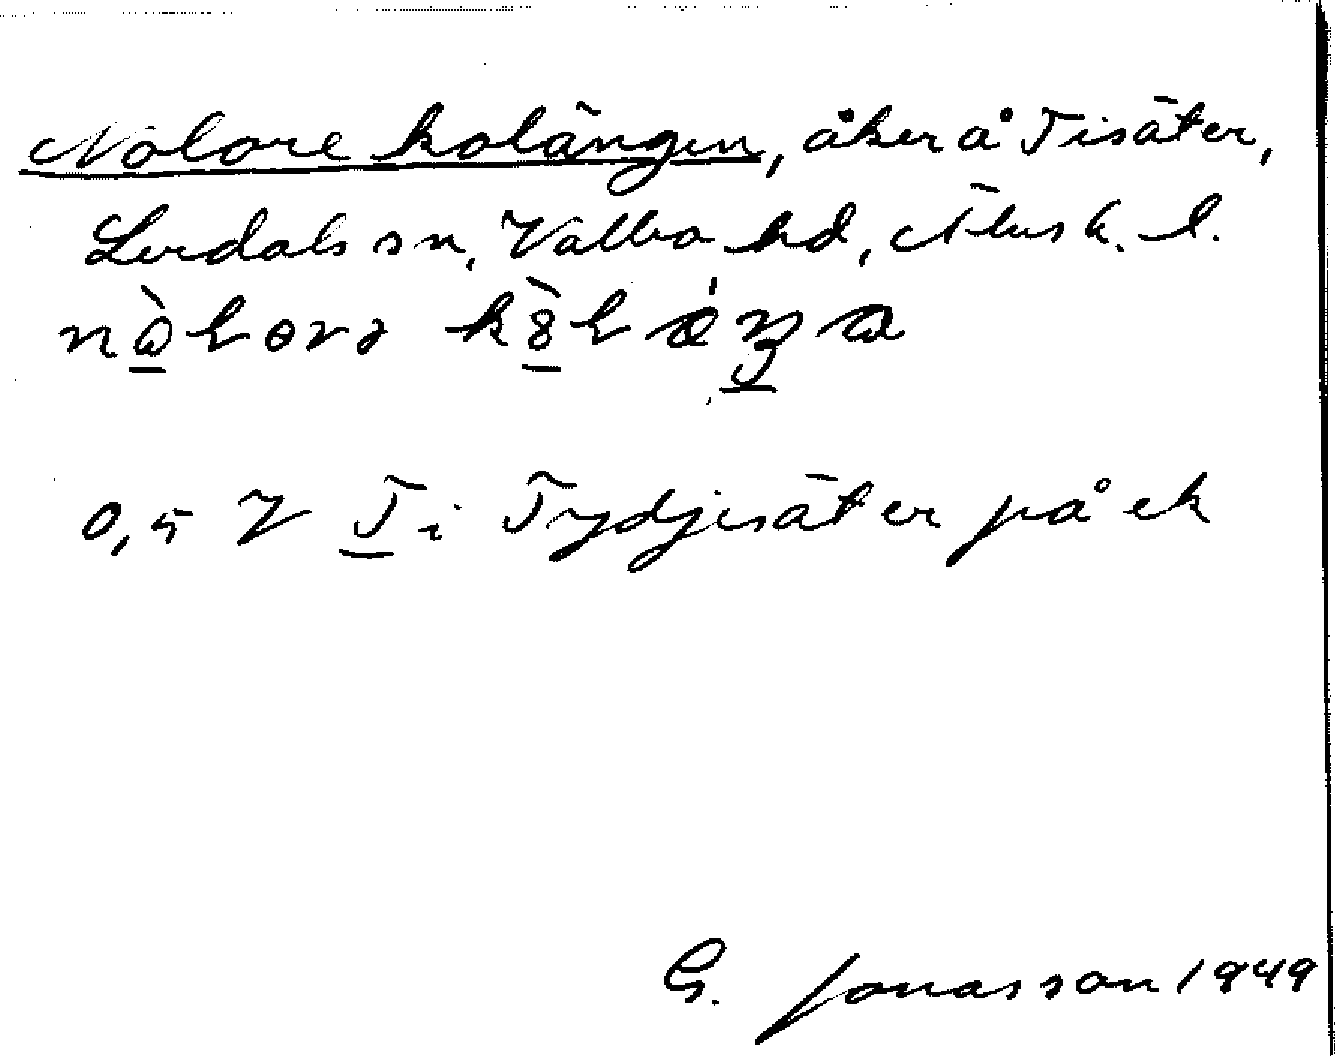 Nolore kolängen, åker å Tisäter,
Lerdals sn, Valbo hd, Älvsb. l.
0,5 V T i Tydjesäter på ek
G. Jonasson 1949